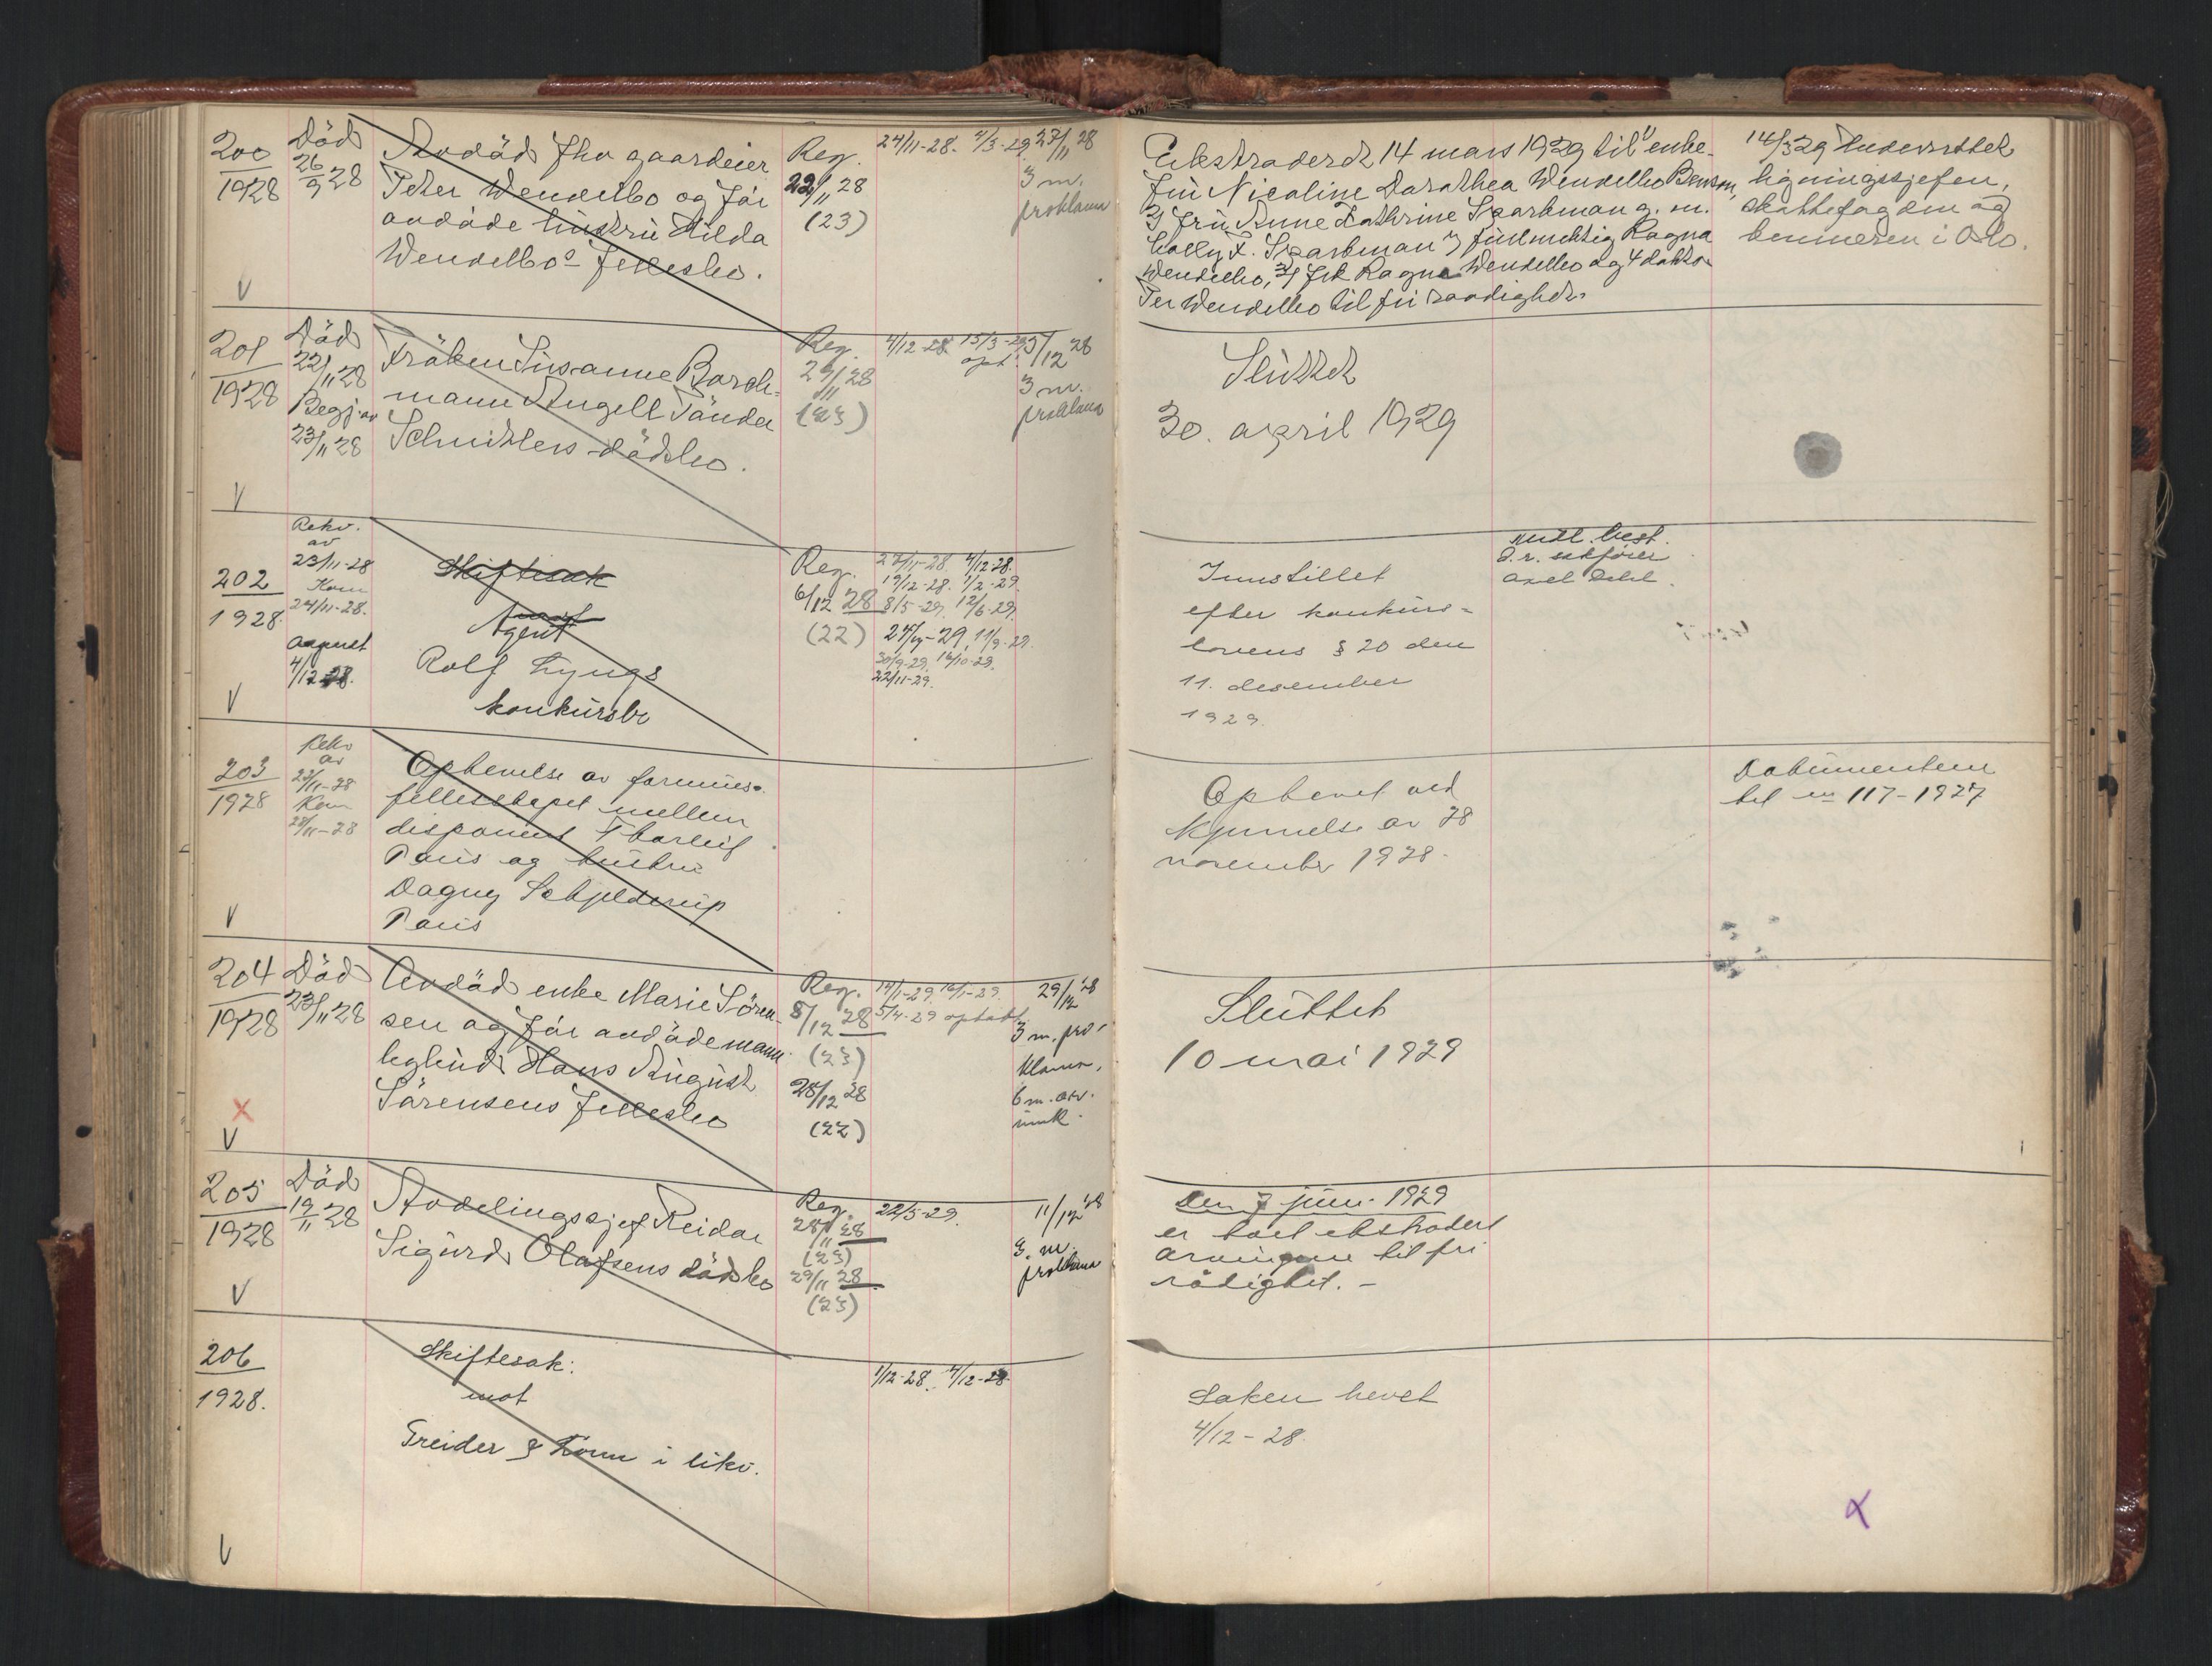 200
1928
Död
26/9 28
Avdöd fhv gaardeier
Peter Wendelbo og før
avdøde hustru Hilda
Wendelbos fellesbo.
V
Reg.
22/11 28
(23)
24/11-28. 4/3-29
27/11 28
3 m.
proklama
Ekstradert 14 mars 1929 til 1) enke-
fru Nicoline Dorothea Wendelbo Benson,
2) fru Anne Kathrine Sparbman g. m.
Colly F. Sparbman 3) fuldmektig Ragna
Wendelbo, 4) frk Ragna Wendelbo og 4 doktor
Per Wendelbo til fri raadighet.
14/3 29 Underrettet
ligningssjefen,
skattefogden og
kemneren i Oslo.
201
1928
Död
22/11 28
Begj. av
23/11 28
Fröken Susanne Barch-
mann Angell Tända
Schnitlers dødsbo.
V
Reg.
24/11 28
(23)
4/12-28 15/3-29
opt.
5/12 28
3 m.
proklama
Sluttet
30. april 1929
202
1928.
Rekv.
av
23/11-28
Kom
24/11-28.
August
4/12 28.
Skiftesak
mot
Agent
Rolf Lyngs
konkursbo
V
Reg.
6/12 28
(22)
27/11-28 4/12 28.
19/12-28. 1/2-29.
8/5-29. 12/6-29.
11/9-29.
30/9-29. 16/10-29.
22/11-29.
Innstillet
efter konkurs-
lovens § 20 den
11. desember
1929.
Midl. best.
o. r. sakfører
Axel Dehl.
203
1928
Rekv
av
27/11-28
Kom
28/11-28
Ophevelse av formues-
fellesskapet mellem
disponent Thorleif
Paus og hustru
Dagny Schjelderup
Paus
V
Ophevet ved
kjennelse av 28
november 1928.
Dokumentene
til nr 117-1927
204
1928
Död
23/11 28
Avdöd enke Marie Sören-
sen og før avdöde mann
heglund Hans August
Sörensens fellesbo
X
V
Reg.
8/12 28
(23)
28/12 28
(22)
14/1-29. 16/1-29.
5/4-29 optatt
29/12 28
3 m. pro-
klama.
6 m. arv.
innk.
Sluttet
10 mai 1929
205
1928
Död
19/11 28
Avdelingssjef Reidar
Sigurd Olafsens dödsbo
V
Reg.
28/11 28
(23)
29/11 28
(23)
22/5-29.
11/12 28
3. m.
proklama
Den 7 juni 1929
er boet ekstradert
arvingene til fri
rådighet. –
206
1928.
Skiftesak:
mot
Greider & Konn i likv.
V
1/12-28. 4/12-28.
Saken hevet
4/12-28.
X